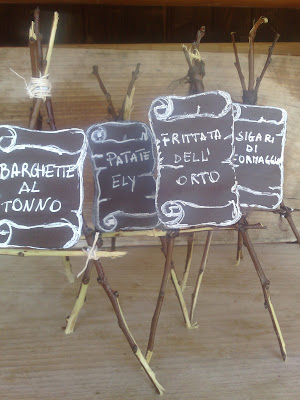 BARGHETTE
AL
TONNO
PATATE
ELY
FRITTATA
DELL'
ORTO
SIGARI
DI
FORMAGGIO